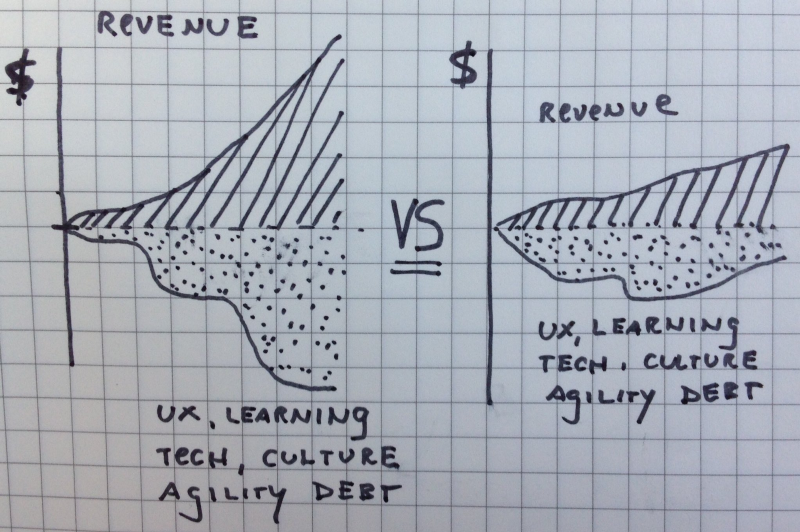 REVENUE
$
UX, LEARNING
TECH, CULTURE
AGILITY DEBT
VS
$
Revenue
UX, LEARNING
TECH, CULTURE
AGILITY DEBT